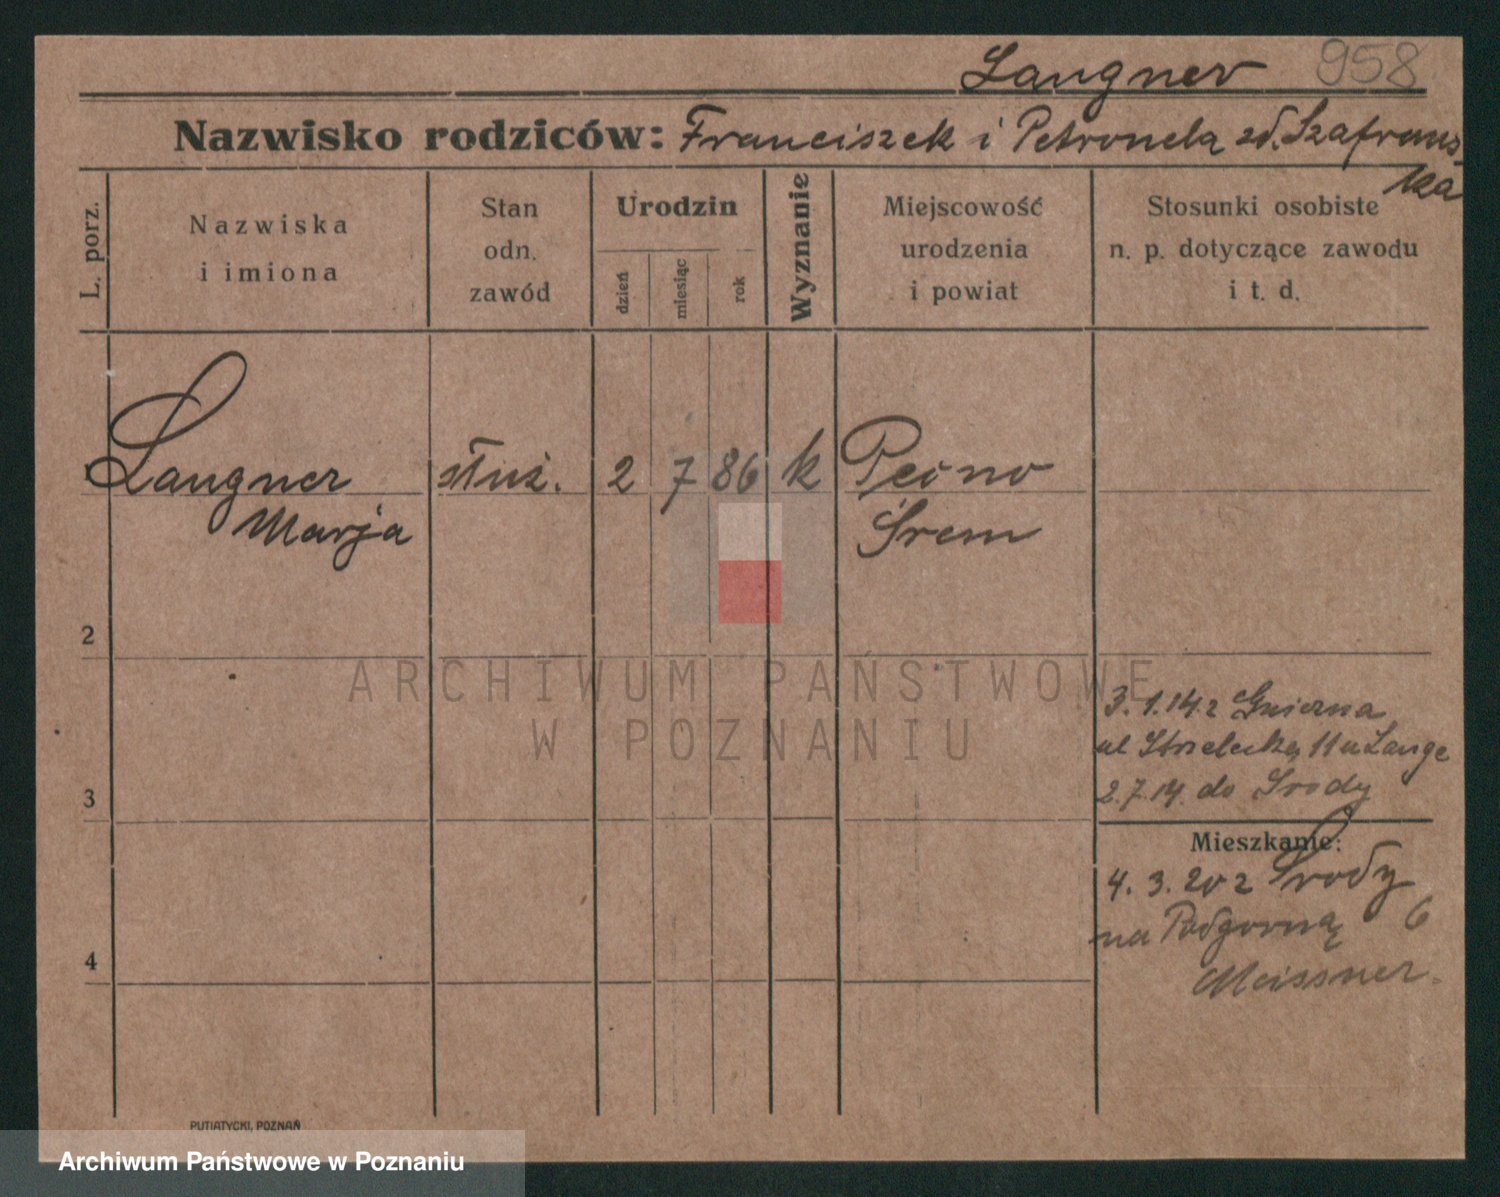 Langner 958
Nazwisko rodziców: Franciszek i Petronela zd. Szafrans-
ka
L. porz.
Nazwiska
i imiona
Stan
odn.
zawód
Urodzin
dzień
miesiąc
rok
Wyznanie
Miejscowość
urodzenia
i powiat
Stosunki osobiste
n. p. dotyczące zawodu
i t. d.
Langner służ. 2 7 86 k
Marja Śrem
2
ARCHIWUM PAŃSTWOWE
W POZNANIU
3. 1. 14 z Gniezna
ul Strzelecka 11 u Lange
2. 7. 14. do Środy
3
Mieszkanie:
4. 3. 20 z Środy
na Podgorną 6
Meissner.
4
PUTIATYCKI, POZNAŃ
Archiwum Państwowe w Poznaniu